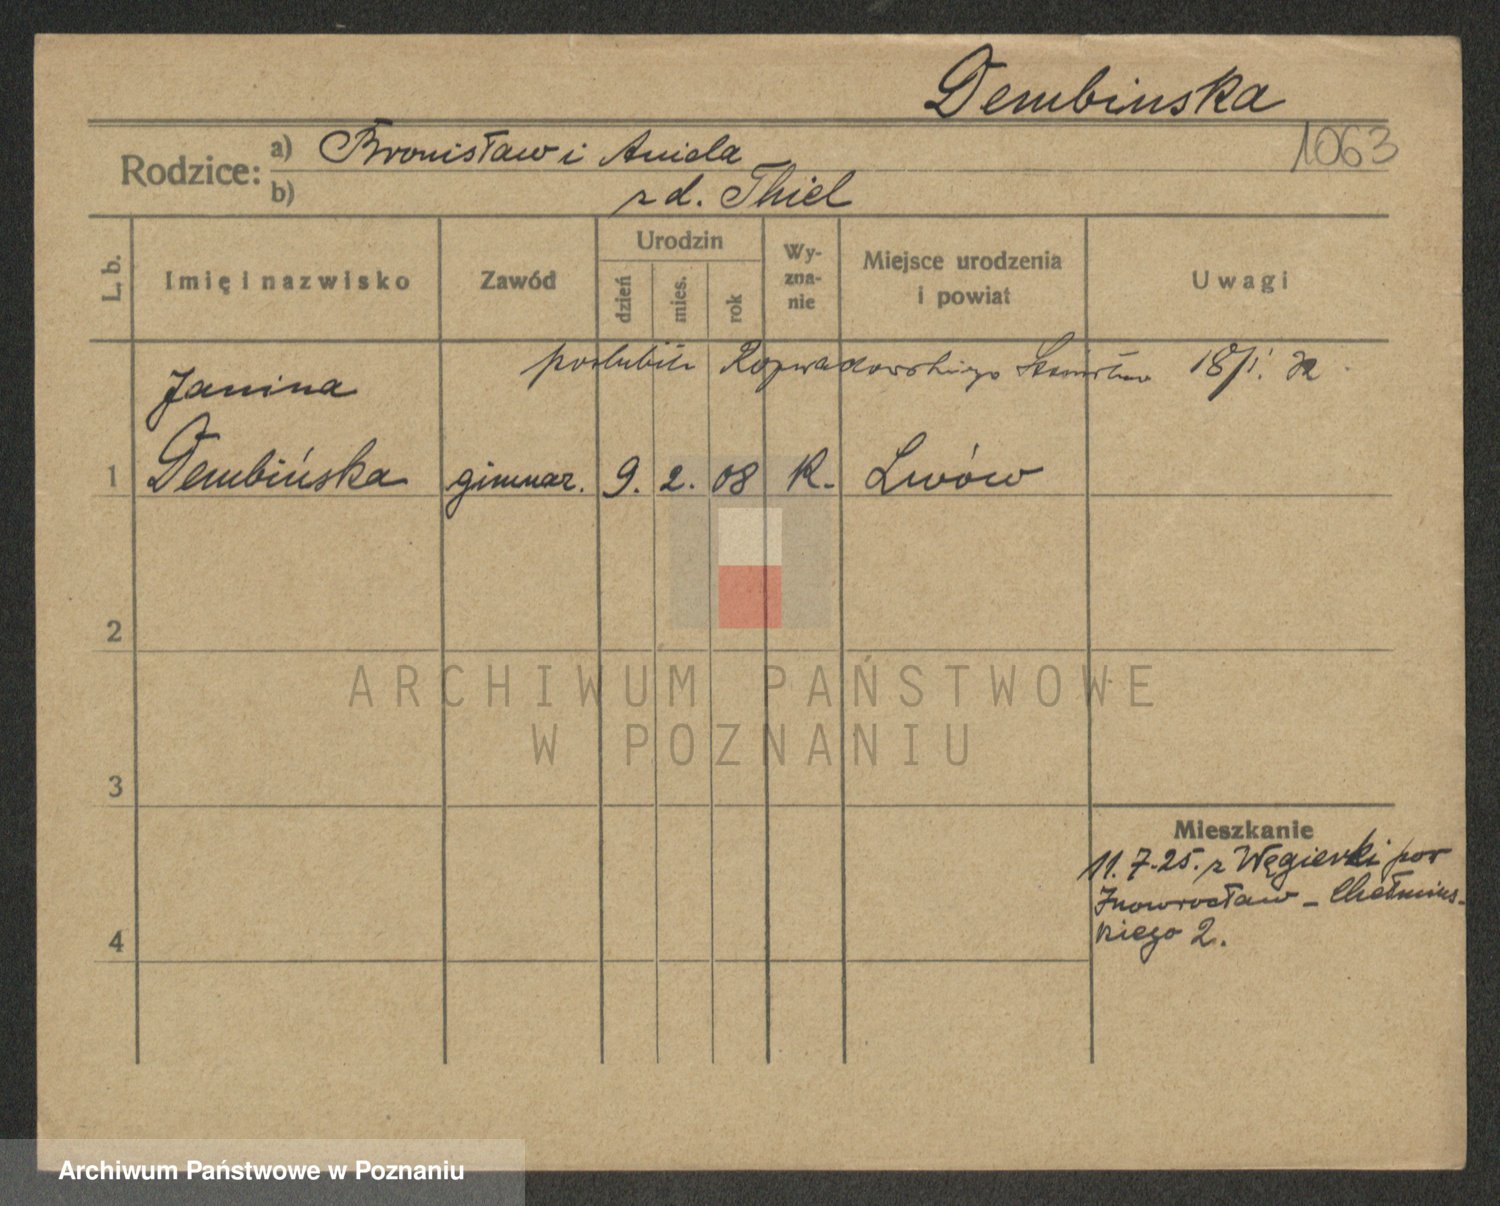 Dembinska
1063
Rodzice: a) Bronisław i Aniela
b) z d. Thiel
L. b.
Imię i nazwisko
Zawód
Urodzin
dzień
mies.
rok
Wy-
zna-
nie
Miejsce urodzenia
i powiat
Uwagi
poślubiła Rozwadowskiego 18/I. 32
Janina
1 Dembińska gimnaz. 9. 2. 08 k. Lwów
2
ARCHIWUM PAŃSTWOWE
W POZNANIU
3
Mieszkanie
11.7.25. z Węgierki pow
Inowrocław – Chełmińs-
kiego 2.
4
Archiwum Państwowe w Poznaniu